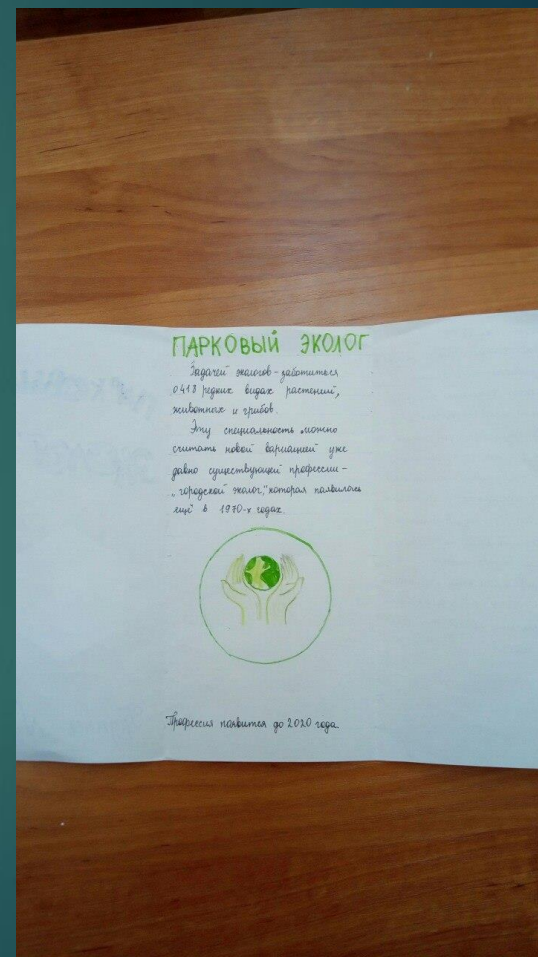 ПАРКОВЫЙ ЭКОЛОГ
Задачей экологов - заботиться
о 413 редких видах растений,
животных и грибов.
Эту специальность можно
считать новой вариацией уже
давно существующей профессии -
„городской эколог," которая появилась
ещё в 1970-х годах.
Профессия появится до 2020 года